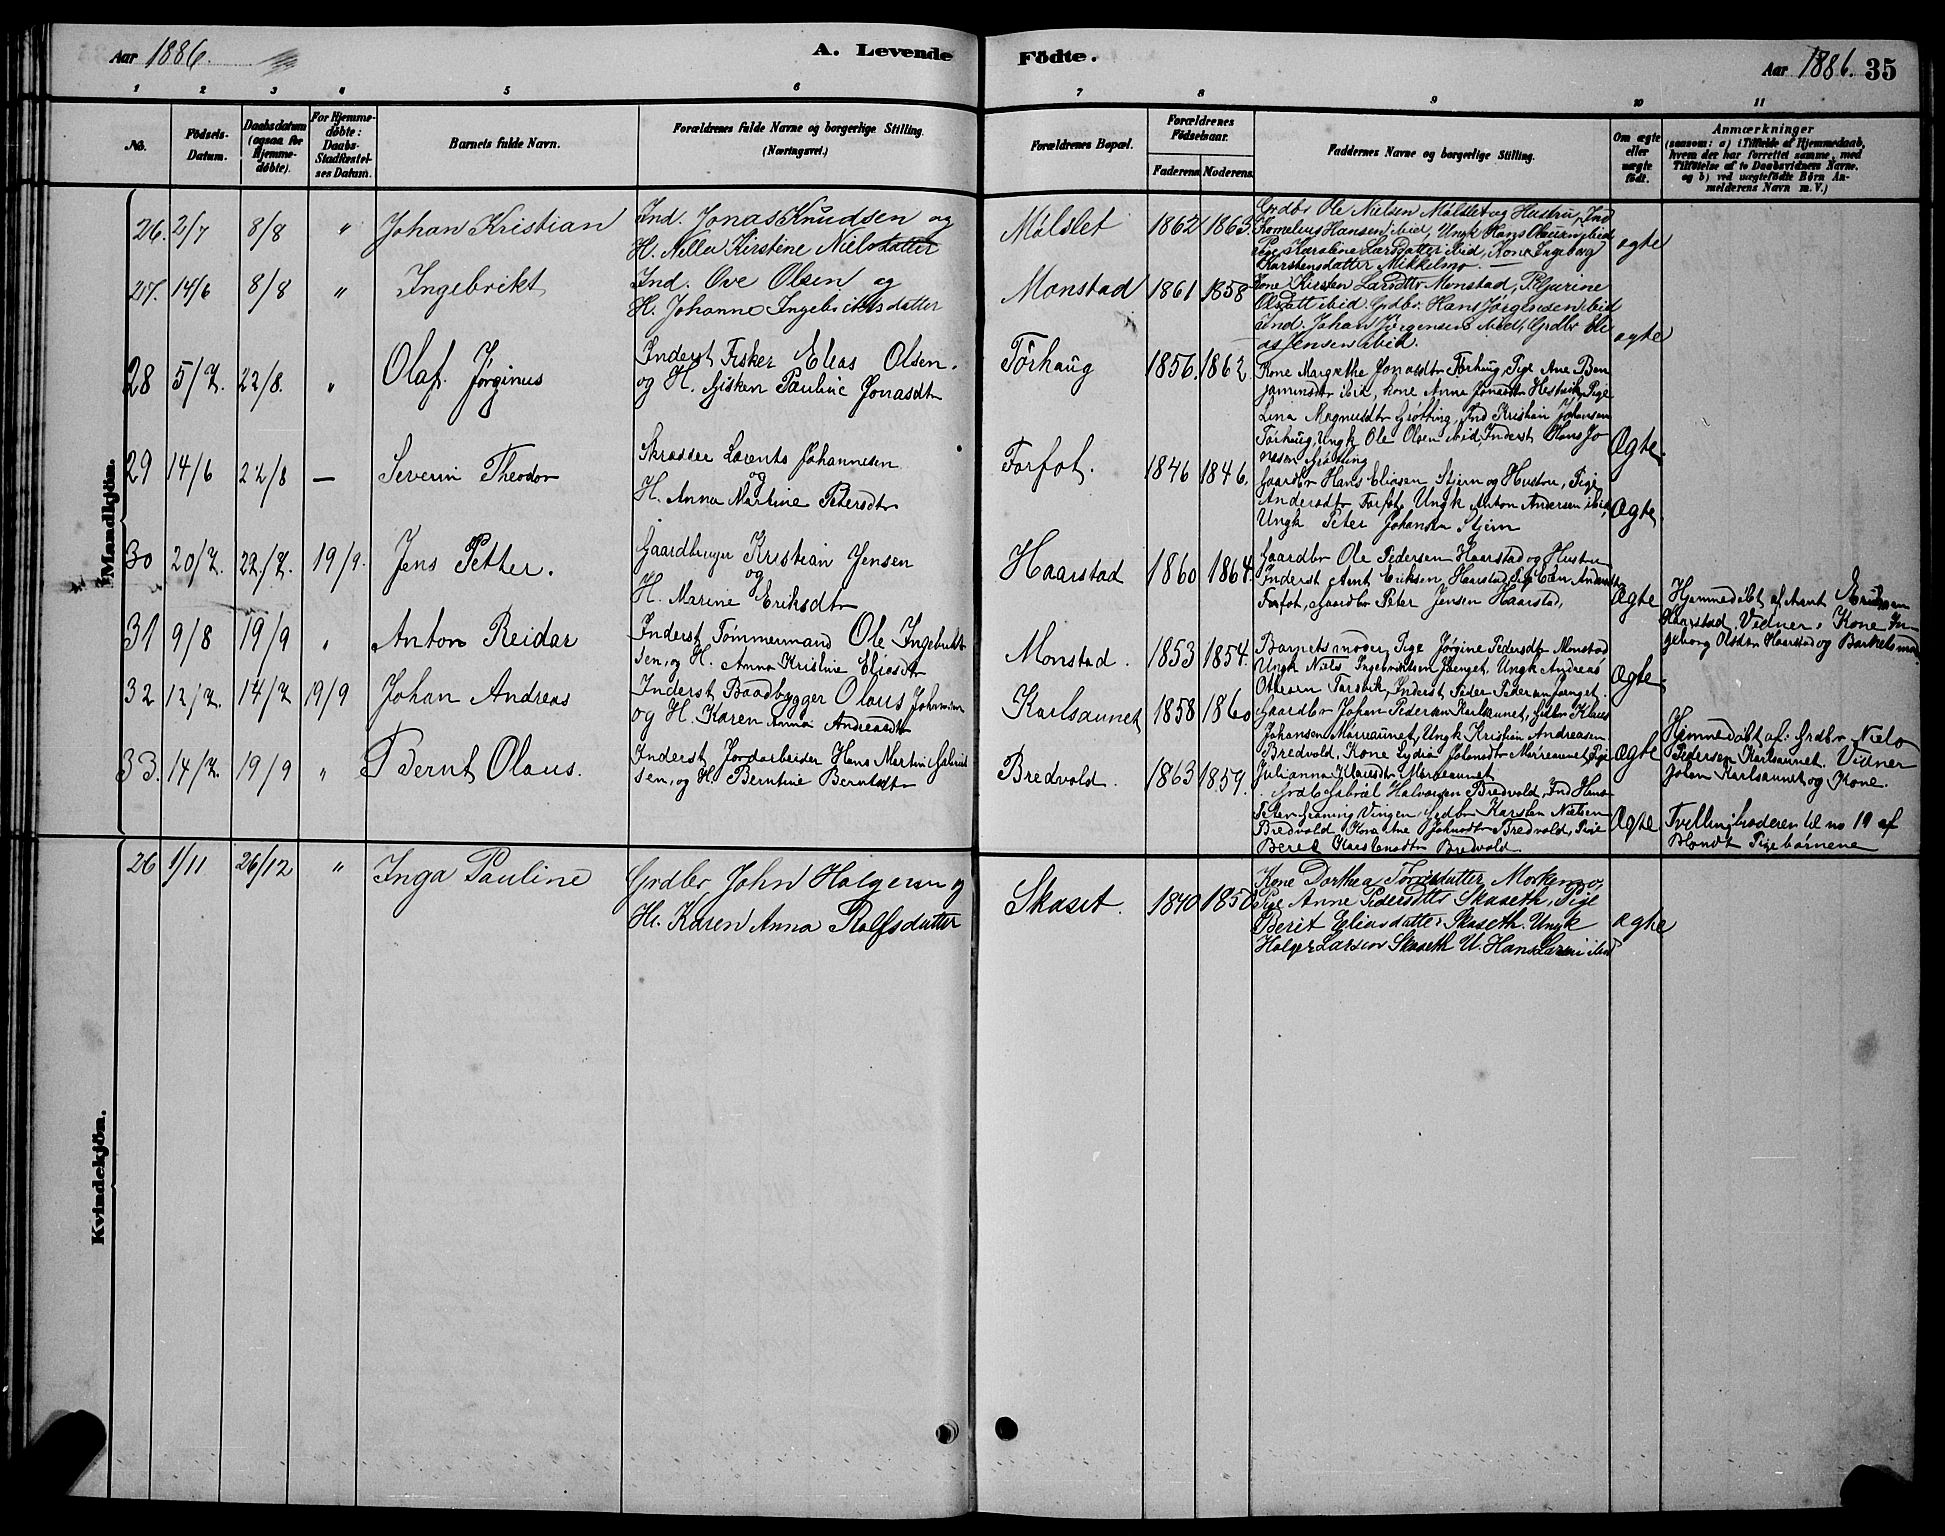 Aar 1886.
A. Levende Födte.
Aar 1886. 35
1 2 3 4 5 6 7 8 9 10 11
No.
Födsels-
Datum.
Daabsdatum
(ogsaa for
Hjemme-
døbte).
For Hjemme-
døbte:
Daabs-
Stadfæstel-
ses Datum.
Barnets fulde Navn.
Forældrenes fulde Navne og borgerlige Stilling.
(Næringsvei.)
Forældrenes Bopæl.
Forældrenes
Födselsaar.
Faderens. Moderens.
Faddernes Navne og borgerlige Stilling.
Om ægte
eller
uægte
født.
Anmærkninger
(saasom: a) i Tilfælde af Hjemmedaab,
hvem der har forrettet samme, med
Tilföielse af to Daabsvidners Navne,
og b) ved uægtefödte Börn An-
melderens Navn m. V.)
Mandkjön.
26. 2/7 8/8 " Johan Kristian
Ind. Jonas Knudsen og
H. Mella Kirstine Nielsdatter
Målslet 1862 1863
Grdbr Ole Nielsen Målslet og Hustru, Ind
Kornelius Hansen ibid, Ungk Hans Olausen ibid
Pige Karoline Larsdatter ibid, Kone Ingeborg
Karstensdatter Mikkelmo.
ægte
27. 14/6 8/8 " Ingebrikt
Ind. Ove Olsen og
H. Johanne Ingebriktsdatter
Monstad 1861 1858
Kone Kirsten Larsdttr Monstad, P. Gjurine
Olsdatt ibid. Grdbr. Hans Jørgensen ibid
Ind. Johan Jørgensen ibid, Grdbr Eli
as Jensen ibid.
ægte
28 5/7. 22/8. " Olaf Jørginus
Inderst Fisker Elias Olsen.
og H. Gjsken Pauline Jonasdtr
Tørhaug 1856. 1862
Kone Margrethe Jonasdtr Tørhaug, Pige Ane Ben
jaminsdtr ibid, Kone Anna Jonasdtr Hestvik, Pige
Lina Magnusdtr Grøtting, Ind Kristian Johansen
Tørhaug, Ungk Ole Olsen ibid, Inderst Hans Jo
nesen Grøtting
Ægte.
29 14/6 22/8 — Severin Theodor
Skrædder Lorents Johannesen
og
H. Anna Martine Petersdtr
Forfot. 1846 1846.
Gaardbr Hans Eliasen Stjern og Hustru, Pige
Andersdtr Forfot, Ungk Anton Andersen ibid,
Ungk Peter Johansen Stjern
Ægte
30 20/7. 22/7. 19/9. Jens Petter.
Gaardbruger Kristian Jensen
og
H. Marine Eriksdtr
Haarstad 1860 1864.
Gaardbr Ole Pedersen Haarstad og Hustru
Inderst Arnt Eriksen Haarstad, Pige Andersdtr
Forfot, Gaardbr Peter Jensen Haarstad,
Ægte
Hjemmedöbt af Arnt Eriksen
Haarstad Vidner: Kone In
geborg Olsdtr Haarstad og Barselmod.
31 9/8 19/9 " Anton Reidar
Inderst Tømmermand Ole Ingebrikt
sen, og H. Anna Kristine Eliasdtr
Monstad. 1853 1854.
Barnets moder, Pige Jørgine Pedersdtr Monstad
Ungk Niels Ingebriktsen, Ungk Andreas
Tarsvik, Inderst Peder Pedersen.
Ægte
32 12/7. 14/7 19/9 Johan Andreas
Inderst Baadbygger Olaus Johansen
og H. Karen Anna Andreasdtr
Karlsaunet 1858 1860
Gaardbr Johan Pedersen Karlsaunet, Grdbr Klaus
Johansen Mørreaunet, Ungk Kristian Andreasen
Bredvold, Kone Lydia Johansdtr Mørreaunet, Pige
Julianna Klausdtr Mørreaunet
Ægte
Hjemmedøbt af: Grdbr Niels
Pedersen Karlsaunet. Vidner
Johan Karlsaunet og Kone.
33. 14/7. 19/9 " Bernt Olaus.
Inderst Jordarbeider Hans Martin Gabriel
sen, og H. Berntine Berntsdtr
Bredvold. 1863 1859.
Grdbr Gabriel Halvorsen Bredvold, Ind Hans
Peter Vingen, Grdbr Karsten Nielsen
Bredvold, Kone Ane Johansdtr Bredvold, Pige
Beret Karstensdtr Bredvold
Ægte.
Tvillingbroderen til no 19 af
Blandt Pigebørnene
Kvindekjön.
26 1/11 26/12 " Inga Pauline
Grdbr John Holgersen og
H. Karen Anna Rolfsdatter
Skaset. 1840 1850
Kone Dorthea Tørrisdatter Morkemo,
Pige Anne Pedersdtr Skaseth, Pige
Berit Eliasdatter Skaseth. Ungk
Holger Larsen Skaseth U. Hans Larsen ibid
ægte